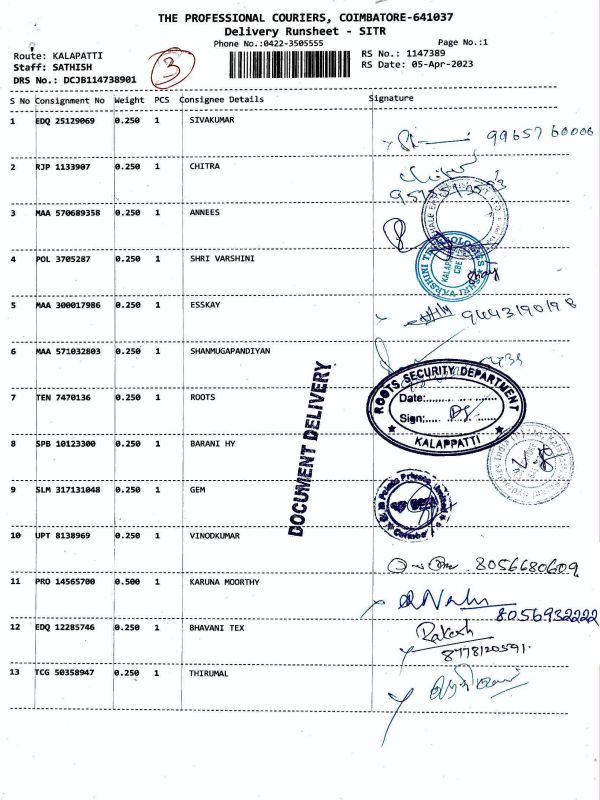 THE PROFESSIONAL COURIERS, COIMBATORE-641037
Delivery Runsheet - SITR
Phone No.:0422-3505555 Page No.:1
Route: KALAPATTI RS No.: 1147389
Staff: SATHISH RS Date: 05-Apr-2023
DRS No.: DCJB114738901
3
S No Consignment No Weight PCS Consignee Details Signature
1 EDQ 25129069 0.250 1 SIVAKUMAR
2 RJP 1133907 0.250 1 CHITRA
3 MAA 570689358 0.250 1 ANNEES
4 POL 3705287 0.250 1 SHRI VARSHINI
KALAPATTI
CBE
5 MAA 300017986 0.250 1 ESSKAY 9443190198
6 MAA 571032803 0.250 1 SHANMUGAPANDIYAN
7 TEN 7470136 0.250 1 ROOTS
ROOTS SECURITY DEPARTMENT
Date:
Sign:
KALAPPATTI
DOCUMENT DELIVERY
8 SPB 10123300 0.250 1 BARANI HY
9 SLM 317131048 0.250 1 GEM
10 UPT 8138969 0.250 1 VINODKUMAR 8056680609
11 PRO 14565700 0.500 1 KARUNA MOORTHY 8056932222
12 EDQ 12285746 0.250 1 BHAVANI TEX Rakesh
8778120591
13 TCG 50358947 0.250 1 THIRUMAL